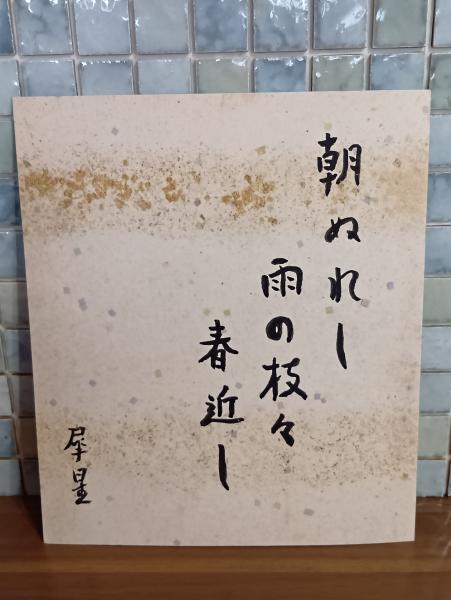 朝ぬれし
雨の枝々
春近し
犀星